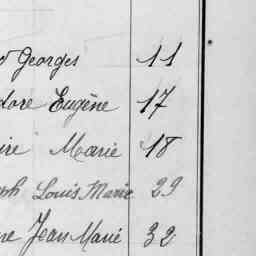 Georges 11
Eugène 17
Marie 18
Louis Marie 29
Jean Marie 32